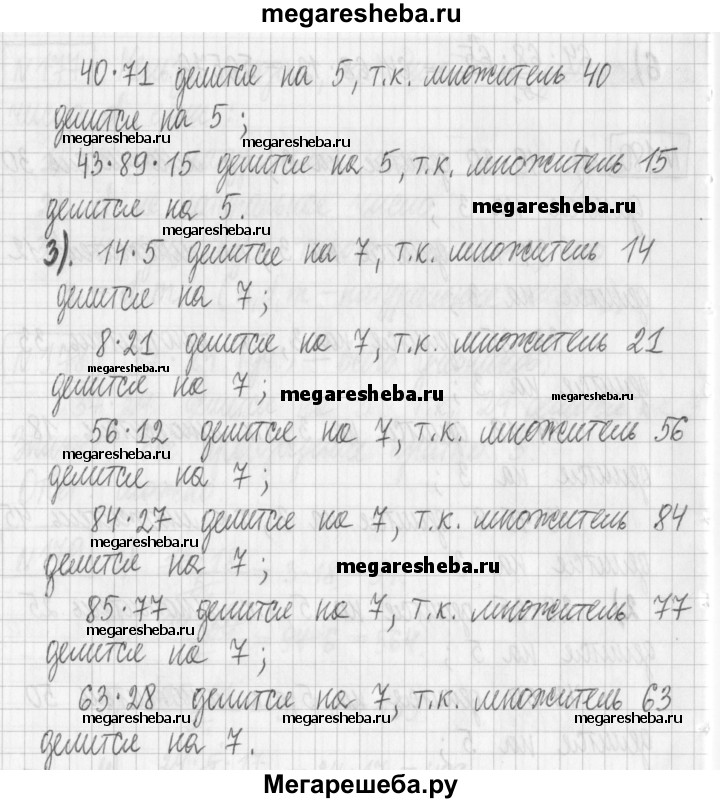 megaresheba.ru
40·71 делится на 5, т.к. множитель 40
делится на 5;
megaresheba.ru megaresheba.ru
43·89·15 делится на 5, т.к. множитель 15
делится на 5. megaresheba.ru
megaresheba.ru
3). 14·5 делится на 7, т.к. множитель 14
делится на 7;
8·21 делится на 7, т.к. множитель 21
megaresheba.ru
делится на 7; megaresheba.ru megaresheba.ru
56·12 делится на 7, т.к. множитель 56
megaresheba.ru
делится на 7;
84·27 делится на 7, т.к. множитель 84
megaresheba.ru
делится на 7; megaresheba.ru
85·77 делится на 7, т.к. множитель 77
megaresheba.ru
делится на 7;
63·28 делится на 7, т.к. множитель 63
megaresheba.ru megaresheba.ru megaresheba.ru
делится на 7.
Мегарешеба.ру